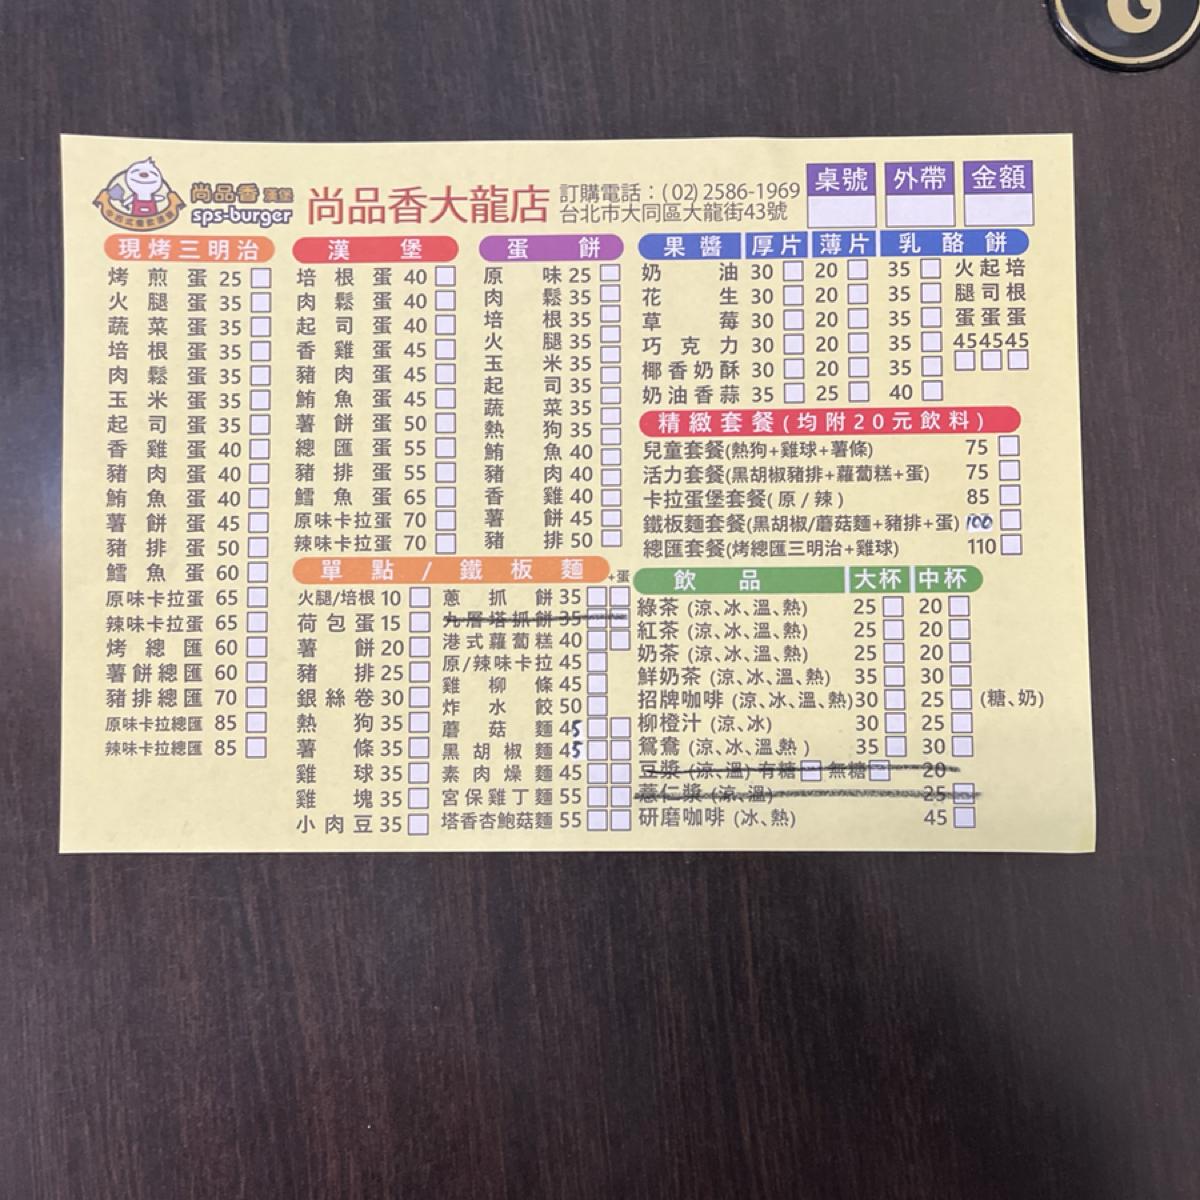 G
尚品香 漢堡
sps-burger
中西式餐飲連鎖
尚品香大龍店
訂購電話：(02) 2586-1969
台北市大同區大龍街43號
桌號 外帶 金額
現烤三明治
烤煎蛋 25
火腿蛋 35
蔬菜蛋 35
培根蛋 35
肉鬆蛋 35
玉米蛋 35
起司蛋 35
香雞蛋 40
豬肉蛋 40
鮪魚蛋 40
薯餅蛋 45
豬排蛋 50
鱈魚蛋 60
原味卡拉蛋 65
辣味卡拉蛋 65
烤總匯 60
薯餅總匯 60
豬排總匯 70
原味卡拉總匯 85
辣味卡拉總匯 85
漢堡
培根蛋 40
肉鬆蛋 40
起司蛋 40
香雞蛋 45
豬肉蛋 45
鮪魚蛋 45
薯餅蛋 50
總匯蛋 55
豬排蛋 55
鱈魚蛋 65
原味卡拉蛋 70
辣味卡拉蛋 70
蛋餅
原味 25
肉鬆 35
培根 35
火腿 35
玉米 35
起司 35
蔬菜 35
熱狗 35
鮪魚 40
豬肉 40
香雞 40
薯餅 45
豬排 50
單點 / 鐵板麵 +蛋
火腿/培根 10
荷包蛋 15
薯餅 20
豬排 25
銀絲卷 30
熱狗 35
薯條 35
雞球 35
雞塊 35
小肉豆 35
蔥抓餅 35
九層塔抓餅 35
港式蘿蔔糕 40
原/辣味卡拉 45
雞柳條 45
炸水餃 50
蘑菇麵 45
黑胡椒麵 45
素肉燥麵 45
宮保雞丁麵 55
塔香杏鮑菇麵 55
果醬 厚片 薄片 乳酪餅
奶油 30 20 35
花生 30 20 35
草莓 30 20 35
巧克力 30 20 35
椰香奶酥 30 20 35
奶油香蒜 35 25 40
火腿蛋 45
起司蛋 45
培根蛋 45
精緻套餐(均附20元飲料)
兒童套餐(熱狗+雞球+薯條) 75
活力套餐(黑胡椒豬排+蘿蔔糕+蛋) 75
卡拉蛋堡套餐(原/辣) 85
鐵板麵套餐(黑胡椒/蘑菇麵+豬排+蛋) 100
總匯套餐(烤總匯三明治+雞球) 110
飲品 大杯 中杯
綠茶 (涼、冰、溫、熱) 25 20
紅茶 (涼、冰、溫、熱) 25 20
奶茶 (涼、冰、溫、熱) 25 20
鮮奶茶 (涼、冰、溫、熱) 35 30
招牌咖啡 (涼、冰、溫、熱) 30 25 (糖、奶)
柳橙汁 (涼、冰) 30 25
鴛鴦 (涼、冰、溫、熱) 35 30
豆漿 (涼、溫) 有糖 無糖 20
薏仁漿 (涼、溫) 25
研磨咖啡 (冰、熱) 45